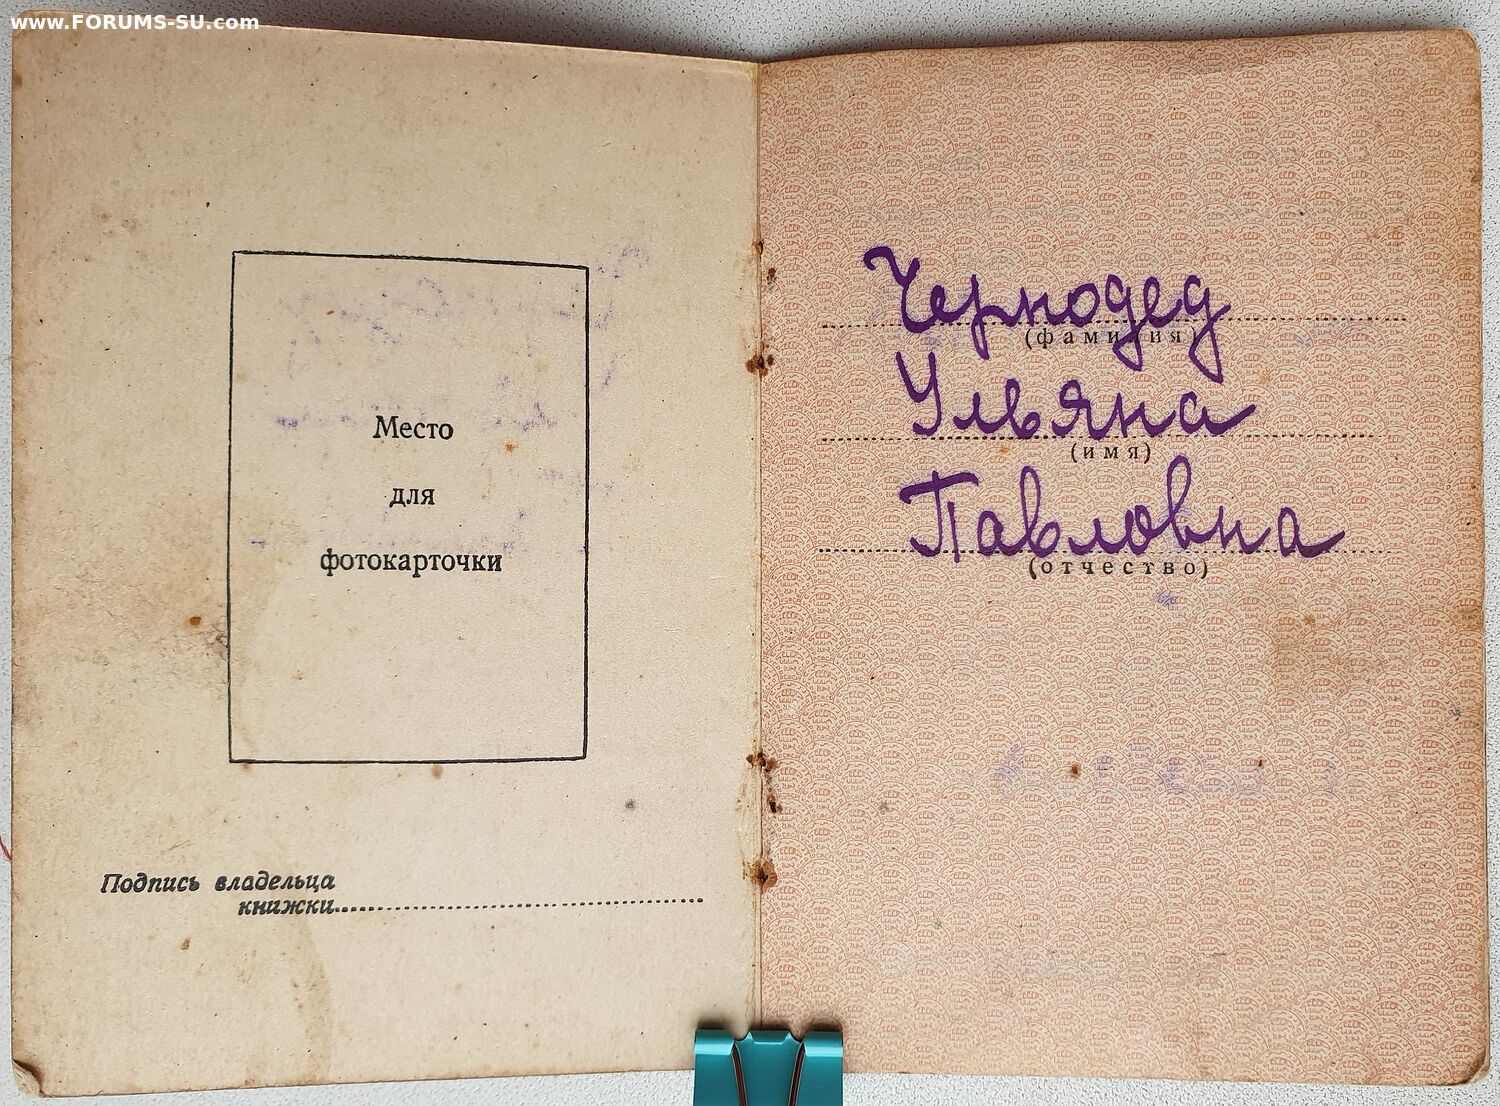 www.FORUMS-SU.com
Место
для
фотокарточки
Подпись владельца
книжки
Чернодед
(фамилия)
Ульяна
(имя)
Павловна
(отчество)